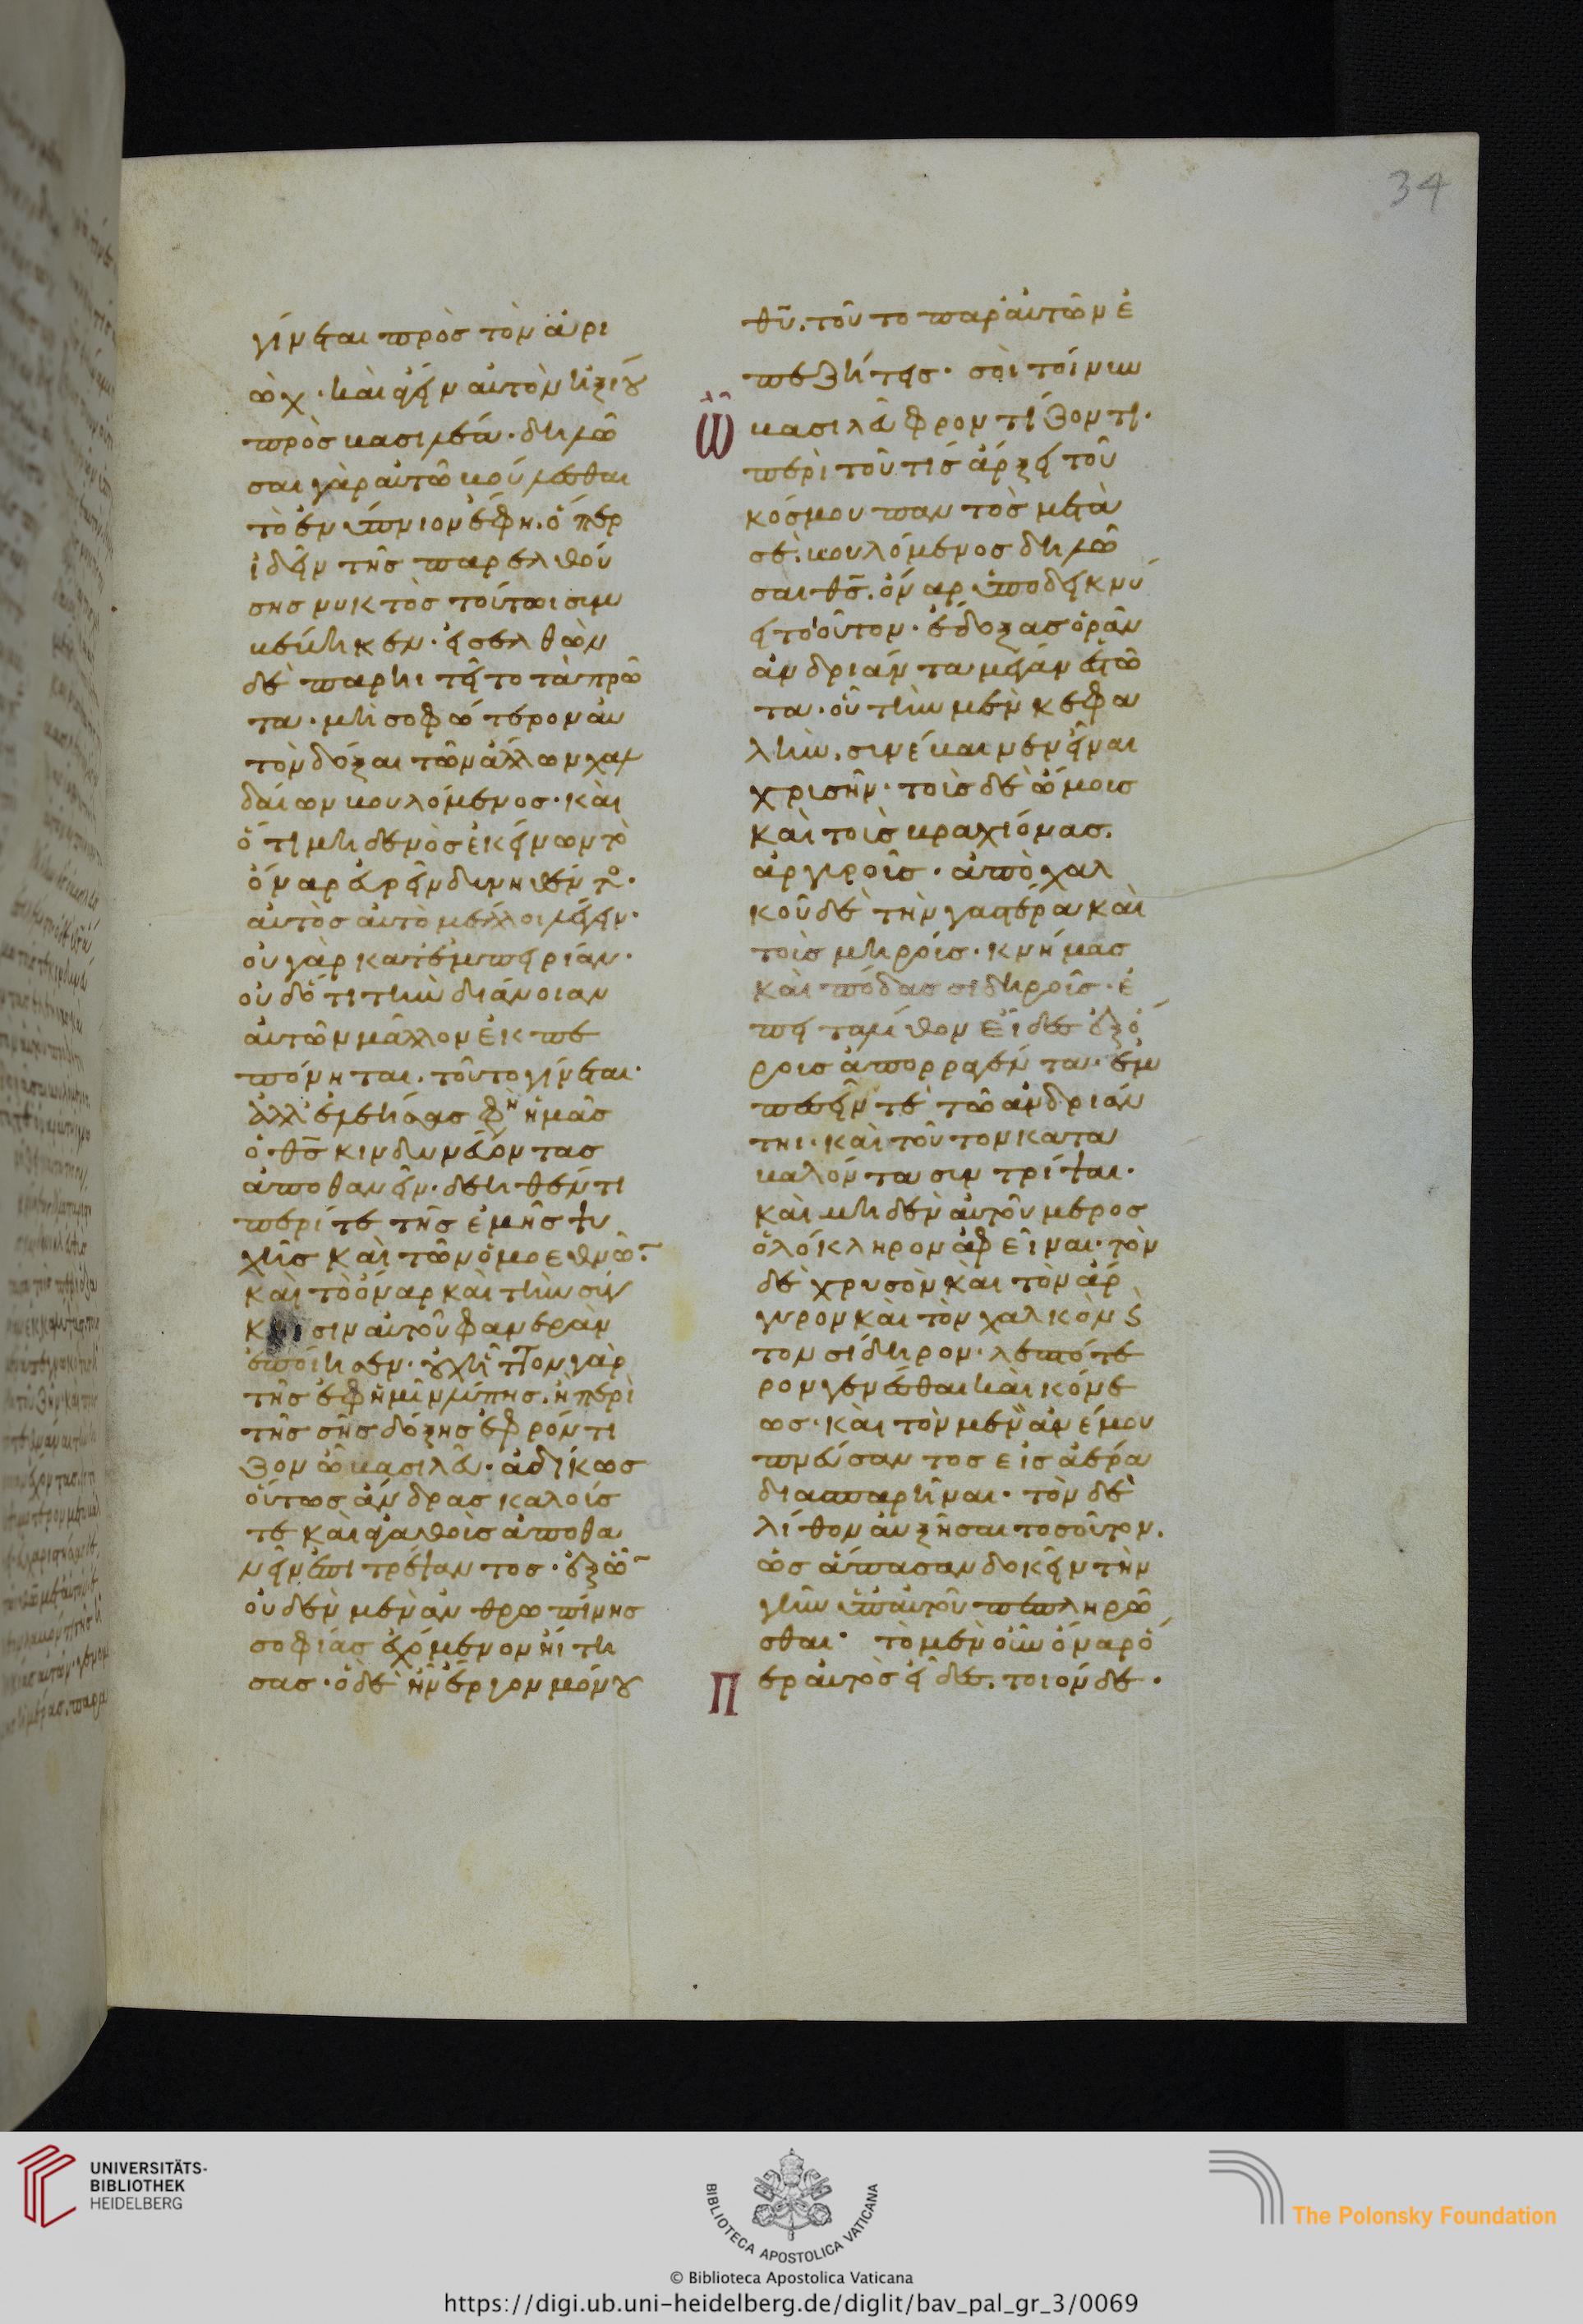 γίνεται πρὸς τὸν ἀρι
ώχ· καὶ ἄγειν αὐτὸν ἠξίου
πρὸς βασιλέα· δηλῶ
σαι γὰρ αὐτῶ βούλεσθαι
τὸ ἐνύπνιον ἔφη. ὅπερ
ἰδεῖν τῆς παρελθού
σης νυκτὸς τούτωι συμ
βέβηκεν· εἰσελθὼν
δὲ παρηιτεῖτο τὰ πρῶ
τα· μὴ σοφώτερον αὐ
τὸν δόξαι τῶν ἄλλων χαλ
δαίων βουλόμενος· καὶ
ὅτι μηδενὸς ἐκείνων τὸ
ὄναρ εὑρεῖν δυνηθέντο·
αὐτὸς αὐτὸ μέλλοι λέγειν·
οὐ γὰρ κατ' ἐμπειρίαν·
οὐδ' ὅτι τὴν διάνοιαν
αὐτῶν μᾶλλον ἐκπε
πόνηται. τοῦτο γίνεται·
ἀλλ' ἐλεήσας φη ἡμᾶς
ὁ θς κινδυνεύοντας
ἀποθανεῖν· δεηθέντι
περί τε τῆς ἐμῆς ψυ
χῆς καὶ τῶν ὁμοεθνῶ
καὶ τὸ ὄναρ καὶ τὴν σύγ
κρισιν αὐτοῦ φανερὰν
ἐποίησεν· οὐχ ἧττον γὰρ
τῆς ἐφ' ἡμῖν λύπης. ἢ περὶ
τῆς σῆς δόξης ἐφρόντι
ζον ὦ βασιλεῦ· ἀδίκως
οὕτως ἄνδρας καλούς
τε καὶ ἀγαθοὺς ἀποθα
νεῖν ἐπιτρέψαντος· ἐξ ὧ
οὐδὲν μὲν ἀνθρωπίνης
σοφίας ἐχόμενον ἤιτη
σας· ὁ δὲ ἦν ἔργον μόνου
34
θῦ. τοῦτο παρ' αὐτῶν ἐ
πεζήτεις· σοὶ τοίνυν
ὦ βασιλεῦ φροντίζοντι·
περὶ τοῦ τίς ἄρξει τοῦ
κόσμου παντὸς μετὰ
σέ. βουλόμενος δηλῶ
σαι θς. ὄναρ ὑποδείκνύ
ει τοιοῦτον· ἔδοξας ὁρᾶν
ἀνδριάντα μέγαν ἑστῶ
τα· οὗ τὴν μὲν κεφα
λὴν. συνέβαινεν εἶναι
χρυσῆν· τοὺς δὲ ὤμους
καὶ τοὺς βραχίονας.
ἀργυροῦς· ἀπὸ χαλ
κοῦ δὲ τὴν γαστέρα καὶ
τοὺς μηρούς· κνήμας
καὶ πόδας σιδηροῦς· ἔ
πειτα λίθον εἶδες ἐξ ὄ
ρους ἀπορραγέντα· ἐμ
πεσεῖν τε τῶ ἀνδριάν
τηι· καὶ τοῦτον κατα
βαλόντα συντρίψαι·
καὶ μηδὲν αὐτοῦ μέρος
ὁλόκληρον ἀφεῖναι· τὸν
δὲ χρυσὸν καὶ τὸν ἄρ
γυρον καὶ τὸν χαλκὸν ϗ
τον σίδηρον· λεπτότε
ρον γενέσθαι καὶ κόνε
ως· καὶ τὸν μὲν ἀνέμου
πνεύσαντος εἰς ἀέρα
διασπαρῆναι· τὸν δὲ
λίθον αὐξῆσαι τοσοῦτον.
ὡς ἅπασαν δοκεῖν τὴν
γῆν ὑπ' αὐτοῦ πεπληρῶ
σθαι· τὸ μὲν οὖν ὄναρ ὅ
περ αὐτὸς εἶδες. τοιόνδε·
UNIVERSITÄTS-
BIBLIOTHEK
HEIDELBERG
BIBLIOTECA APOSTOLICA VATICANA
The Polonsky Foundation
© Biblioteca Apostolica Vaticana
https://digi.ub.uni-heidelberg.de/diglit/bav_pal_gr_3/0069